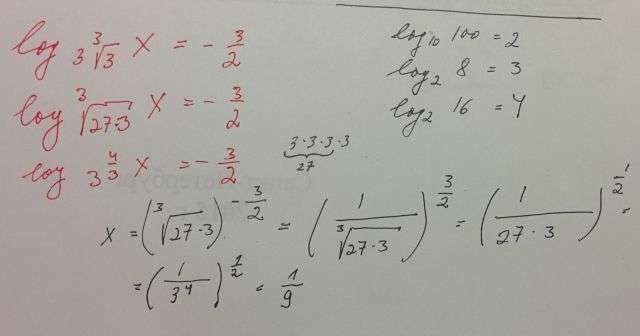 log 3∛3 X = - 3/2
log ∛(27·3) X = - 3/2
log 3^(4/3) X = - 3/2
log₁₀ 100 = 2
log₂ 8 = 3
log₂ 16 = 4
3·3·3·3
27
x = (∛(27·3))^(-3/2) = (1/∛(27·3))^(3/2) = (1/(27·3))^(1/2) =
= (1/3⁴)^(1/2) = 1/9